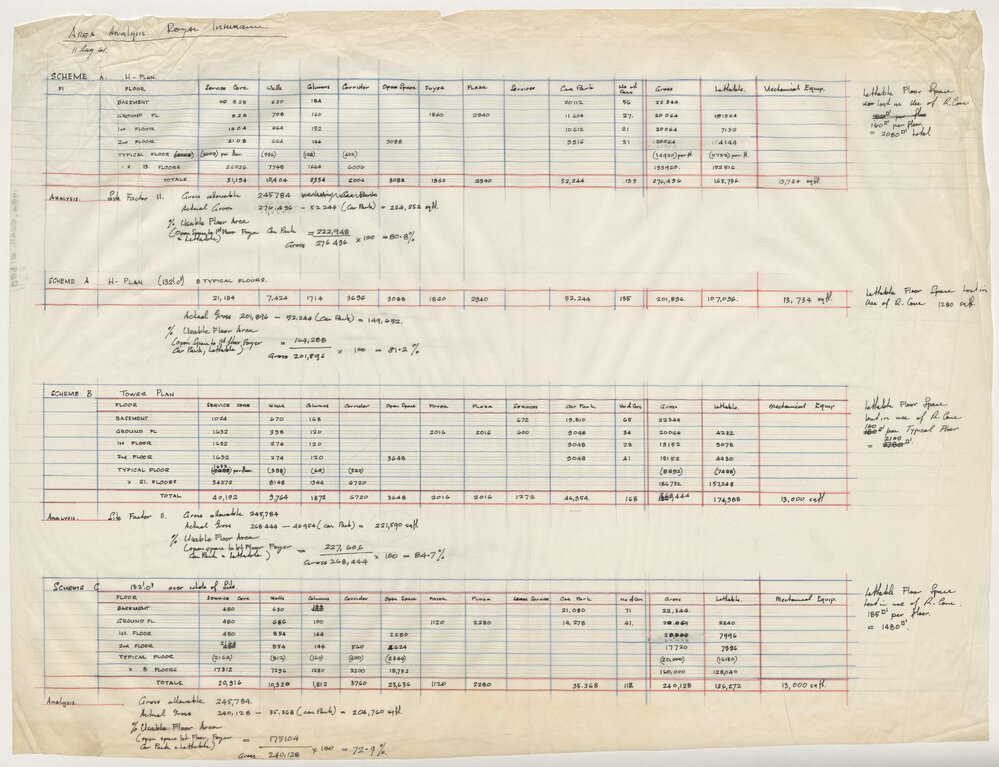 AREA ANALYSIS ROYAL INSURANCE
11 Aug 61.
SCHEME A. H-PLAN.
FLOOR Service Core Walls Columns Corridor Open Space Foyer Plaza Services Car Park No of Cars Gross Lettable. Mechanical Equip.
BASEMENT 828 620 184 20112 56 22344
GROUND FL. 828 708 160 1860 2940 11604 27. 20064
1st FLOOR 1404 664 152 10612 21 20064 7132
2nd FLOOR 2108 664 144 3088 9816 31 20064 4144
TYPICAL FLOOR (2002) per floor. (596) (128) (462) (14920) per fl. (11732) per fl.
x 13 FLOORS. 26026 7748 1664 6006 193960. 152516
TOTALS. 31,194 10,404 2334 6006 3088 1860 2940 52,244 135 276,496 165,786 13,734 sq ft.
Lettable Floor Space
lost in use of R. Conc
160□' per floor.
= 2080□' total
ANALYSIS. Site Factor 11. Gross allowable 245784
Actual Gross 276,496 – 52244 (Car Park) = 224,252 sq ft.
% Usable Floor Area
(Open Space to 1st Floor Foyer Car Park & Lettable) = 222,948
Gross 276496 x 100 = 80.8%
SCHEME A H-PLAN (132'.0") 8 TYPICAL FLOORS.
21,184 7,424 1714 3696 3088 1860 2940 52,244 135 201,896 107,096. 13,734 sq ft.
Lettable Floor Space Lost in
use of R. Conc 1280 sq ft.
Actual Gross 201,896 – 52,244 (Car Park) = 149,652.
% Usable Floor Area
(open Space to 1st floor, Foyer = 164,288
Car Park, Lettable) Gross 201,896 x 100 = 81.2%
SCHEME B TOWER PLAN
FLOOR SERVICE CORE WALLS Columns Corridor Open Space FOYER PLAZA SERVICES CAR PARK No of Cars Gross Lettable. Mechanical Equip
BASEMENT 1024 670 168 672 19,810 65 22344
GROUND FL. 1632 398 120 2016 2016 600 9048 34 20064 4232
1st FLOOR 1632 274 120 9048 28 13152 3078
2nd FLOOR 1632 274 120 3648 9048 41 13152 4430
TYPICAL FLOOR 1632 per floor. (388) (64) (320) (8892) (7488)
x 21. FLOORS 34272 8148 1344 6720 186732 157248
TOTAL 40,192 9,764 1872 6720 3648 2016 2016 1272 46,954. 168 268,444 174,988 13,000 sq ft
Lettable Floor Space
lost in use of R. Conc
100□' per Typical Floor
= 2100□'.
ANALYSIS. Site Factor 11. Gross allowable 245,784
Actual Gross 268444 – 46954 (Car Park) = 221,590 sq ft.
% Usable Floor Area
(open space to 1st Floor Foyer = 227,606
Car Park & Lettable) Gross 268,444 x 100 = 84.7%
SCHEME C 132'.0" over whole of Site.
FLOOR SERVICE CORE WALLS Columns Corridor Open Space FOYER PLAZA Services CAR PARK No of Cars Gross Lettable. Mechanical Equip.
BASEMENT 480 630 21,090 71 22,344.
GROUND FL. 480 686 100 1120 2280 14,278 41. 2240
1st FLOOR 480 854 144 2280 7996
2nd FLOOR 2164 854 144 560 2624 17720 7996
TYPICAL FLOOR (2164) (912) (160) (400) (2344) (20,000) (16180)
x 8 FLOORS 17312 7296 1280 3200 18,752 160,000 128,040
TOTALS. 20,916 10,320 1,812 3760 23,656 1120 2280 35.368 112 240,128 136,272 13,000 sq ft.
Lettable Floor Space
lost in use of R. Conc.
185□' per floor.
= 1480□'.
Analysis. Gross allowable 245,784.
Actual Gross 240,128 – 35.368 (Car Park) = 204,760 sq ft.
% Usable Floor Area
(open space 1st Floor, Foyer = 175104
Car Park & Lettable) Gross 240,128 x 100 = 72.9%.